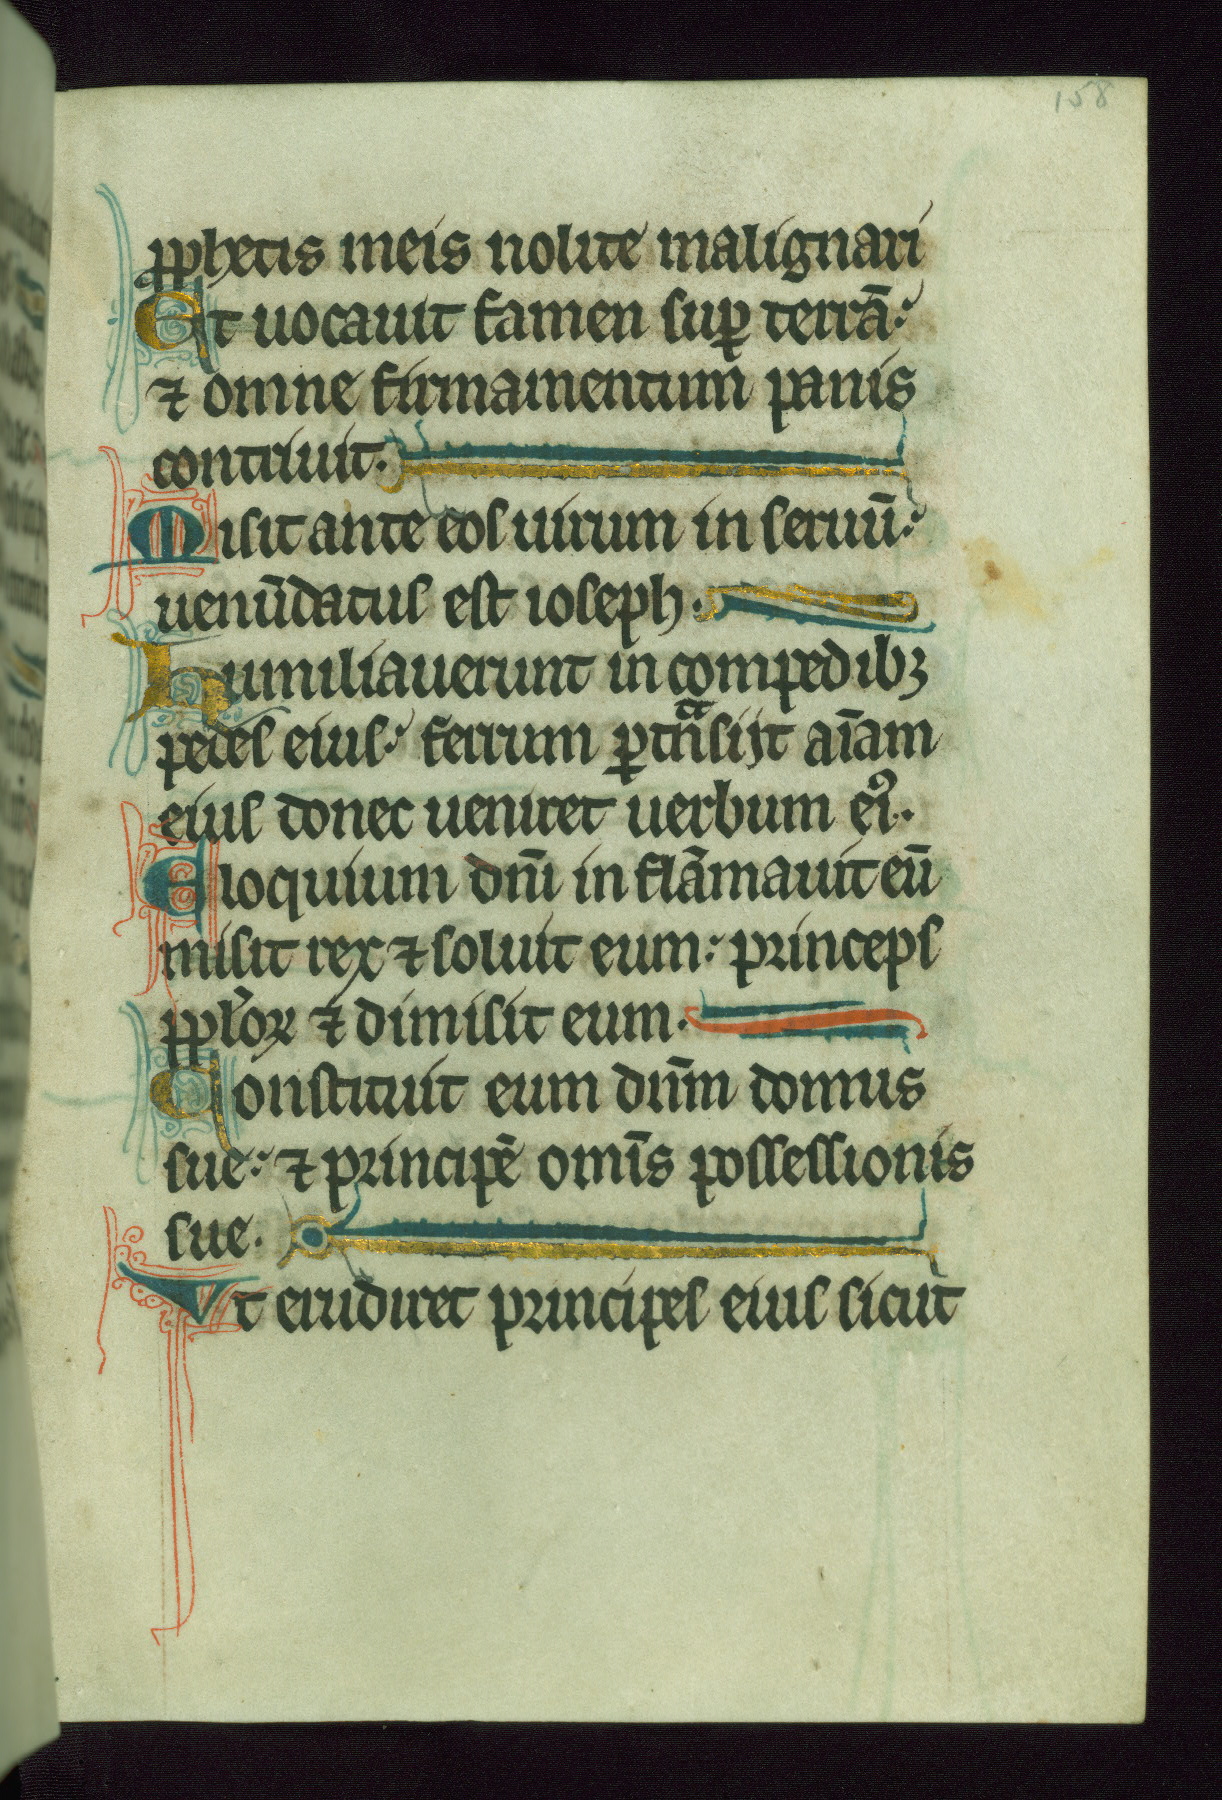 158
ꝓphetis meis nolite malignari
Et uocauit famen suꝑ terrā:
⁊ omne firmamentum panis
contriuit.
Misit ante eos uirum in seruū:
uenūdatus est ioseph.
Humiliauerunt in compedibꝫ
pedes eius: ferrum ꝑtͣnsijt aīam
eius donec ueniret uerbum eiꝰ.
Eloquium dnī in flāmauit eū
misit rex ⁊ soluit eum: princeps
pplo̕ꝝ ⁊ dimisit eum.
Constituit eum dnm̄ domus
sue: ⁊ principē omīs possessionis
sue.
Vt erudiret principes eius sicut